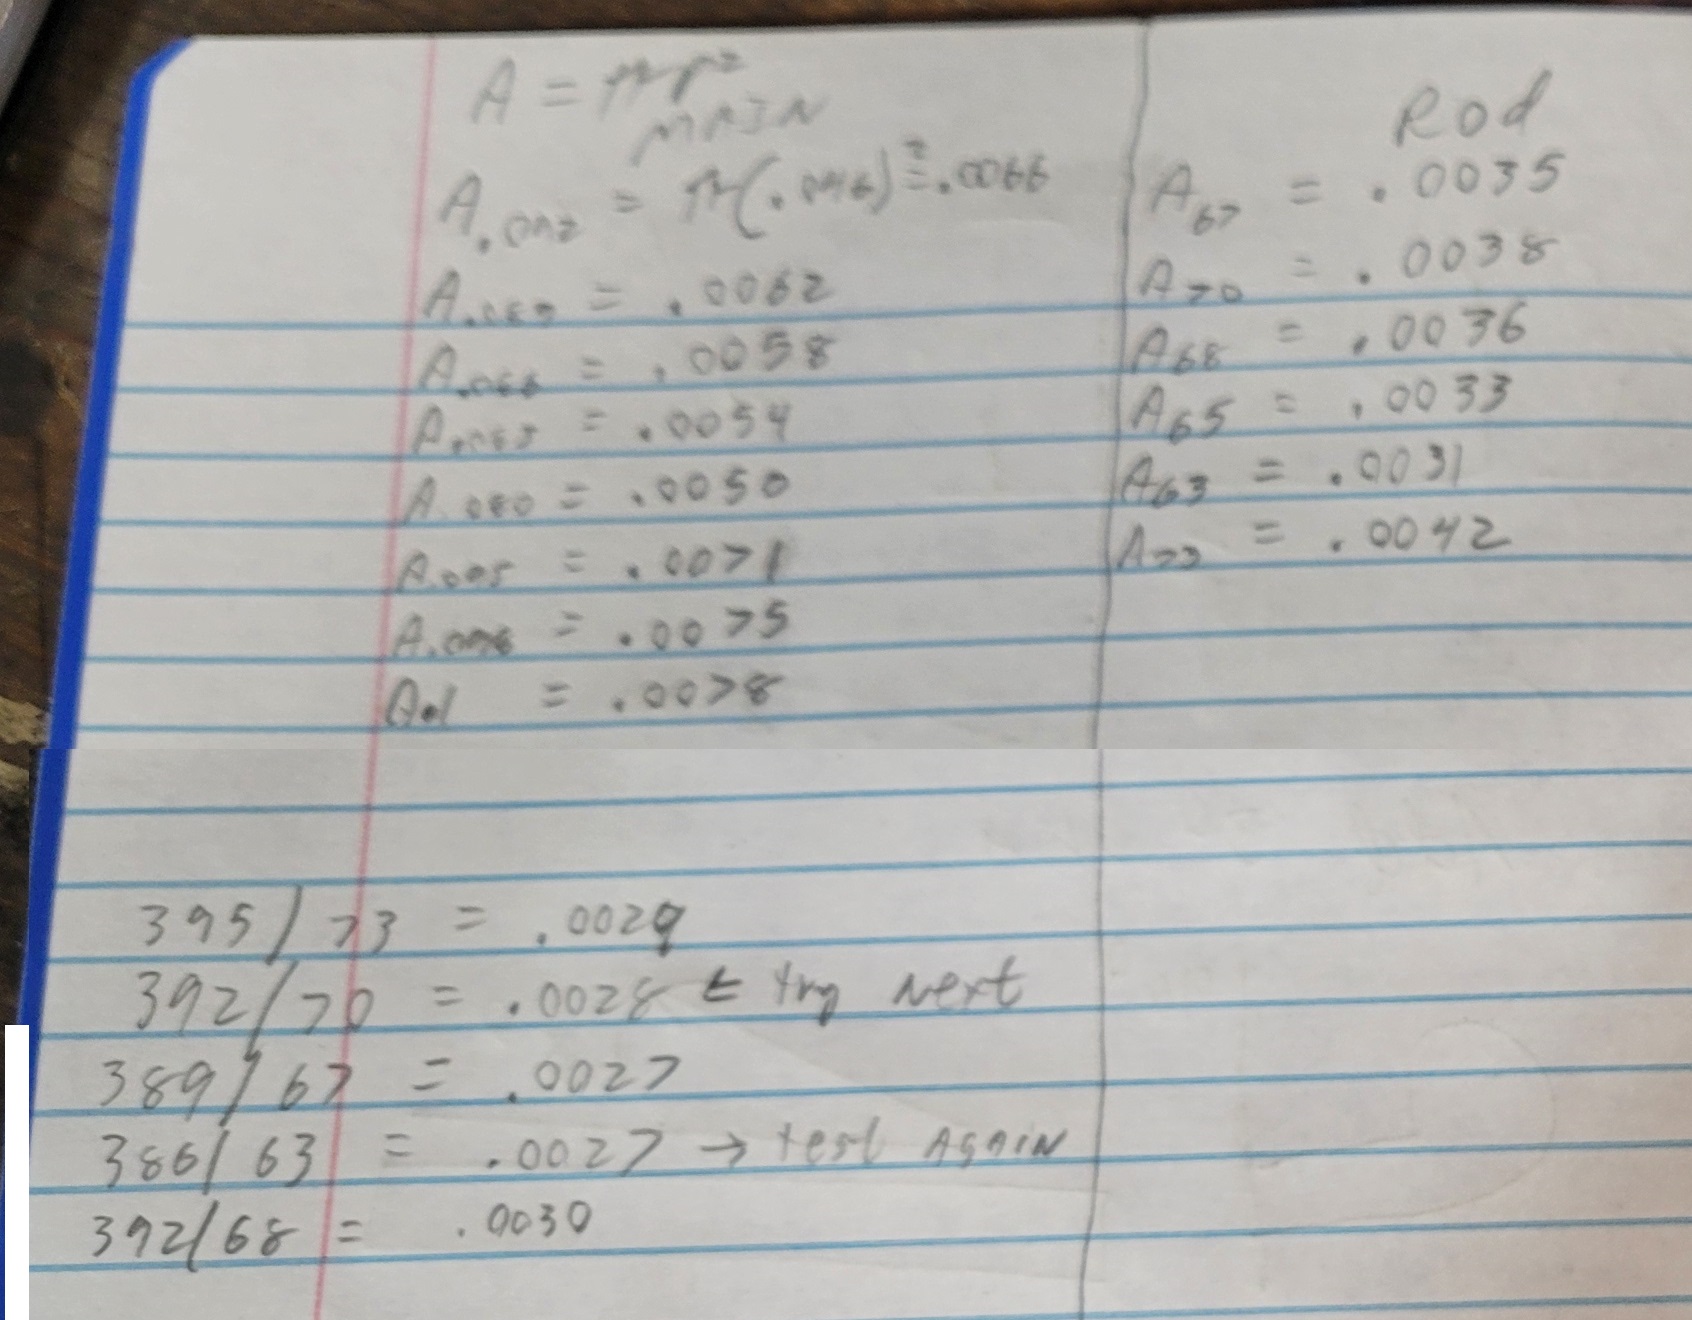 A = πr²
MAIN
A.092 = π(.046)² = .0066
A.089 = .0062
A.086 = .0058
A.083 = .0054
A.080 = .0050
A.095 = .0071
A.098 = .0075
A.1 = .0078
Rod
A67 = .0035
A70 = .0038
A68 = .0036
A65 = .0033
A63 = .0031
A73 = .0042
395/73 = .0029
392/70 = .0028 ← try Next
389/67 = .0027
386/63 = .0027 → test AgAiN
392/68 = .0030